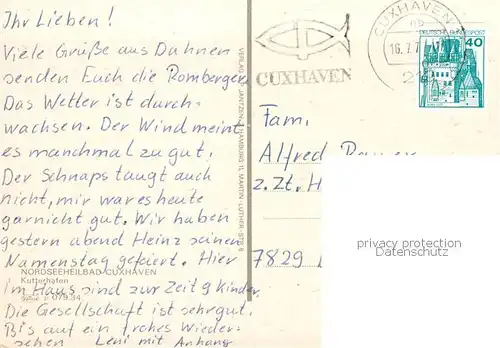 Ihr Lieben!
Viele Grüße aus Duhnen
senden Euch die Romberger
Das Wetter ist durch-
wachsen. Der Wind meint
es manchmal zu gut.
Der Schnaps taugt auch
nicht, mir war es heute
garnicht gut. Wir haben
gestern abend Heinz seinen
Namenstag gefeiert. Hier
im Haus sind zur Zeit 9 Kinder.
Die Gesellschaft ist sehr gut.
Bis auf ein frohes Wieder-
sehen Leni mit Anhang
NORDSEEHEILBAD CUXHAVEN
Kutterhafen
079.34
VERLAG JANTZEN 2 HAMBURG 11, MARTIN-LUTHER-STR. 8
CUXHAVEN
CUXHAVEN
16.7.7
DEUTSCHE BUNDESPOST
40
Fam.
Alfred
z. Zt. H
7829
privacy protection
Datenschutz